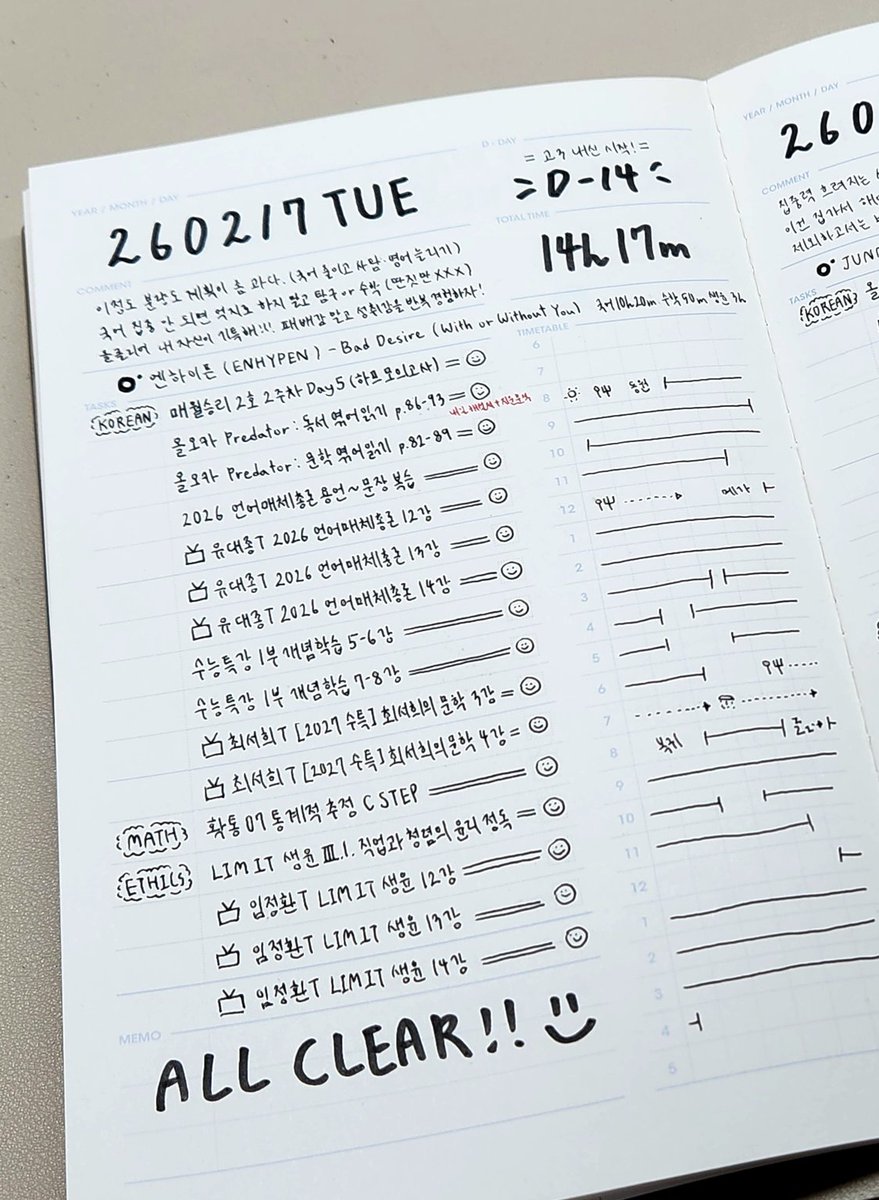 YEAR / MONTH / DAY
260217 TUE
D - DAY
= 고3 내신 시작! =
D-14
TOTAL TIME
14h 17m
COMMENT
이정도 분량도 계획이 좀 과다. (국어 줄이고 사탐·영어 늘리기)
국어 집중 안 되면 억지로 하지 말고 탐구 or 수학 (딴짓만 XXX)
내 자신이 기특해!!! 패배감 말고 성취감을 반복 경험하자!
엔하이픈 (ENHYPEN) - Bad Desire (With or Without You)
국어 10h 20m 수학 50m 생윤 3h
TASKS
KOREAN
매월승리 2호 2주차 Day5 (하프모의고사) =
올오카 Predator: 독서 엮어읽기 p.86-93 =
올오카 Predator: 문학 엮어읽기 p.82-89 =
2026 언어매체총론 용언~문장 복습
유대종T 2026 언어매체총론 12강
유대종T 2026 언어매체총론 13강
유대종T 2026 언어매체총론 14강
수능특강 1부 개념학습 5-6강
수능특강 1부 개념학습 7-8강
최서희T [2027 수특] 최서희의 문학 3강 =
최서희T [2027 수특] 최서희의 문학 4강 =
MATH
확통 07 통계적 추정 C STEP
ETHICS
LIMIT 생윤 Ⅲ.1. 직업과 청렴의 윤리 정독 =
임정환T LIMIT 생윤 12강
임정환T LIMIT 생윤 13강
임정환T LIMIT 생윤 14강
MEMO
ALL CLEAR!!
TIMETABLE
6
7
8
9
10
11
12
1
2
3
4
5
6
7
8
복귀
9
10
11
12
1
2
3
4
5
YEAR / MONTH / DAY
260
COMMENT
집중력 흐려지는
이건 집가서
제외하고서는
JUN
TASKS
KOREAN